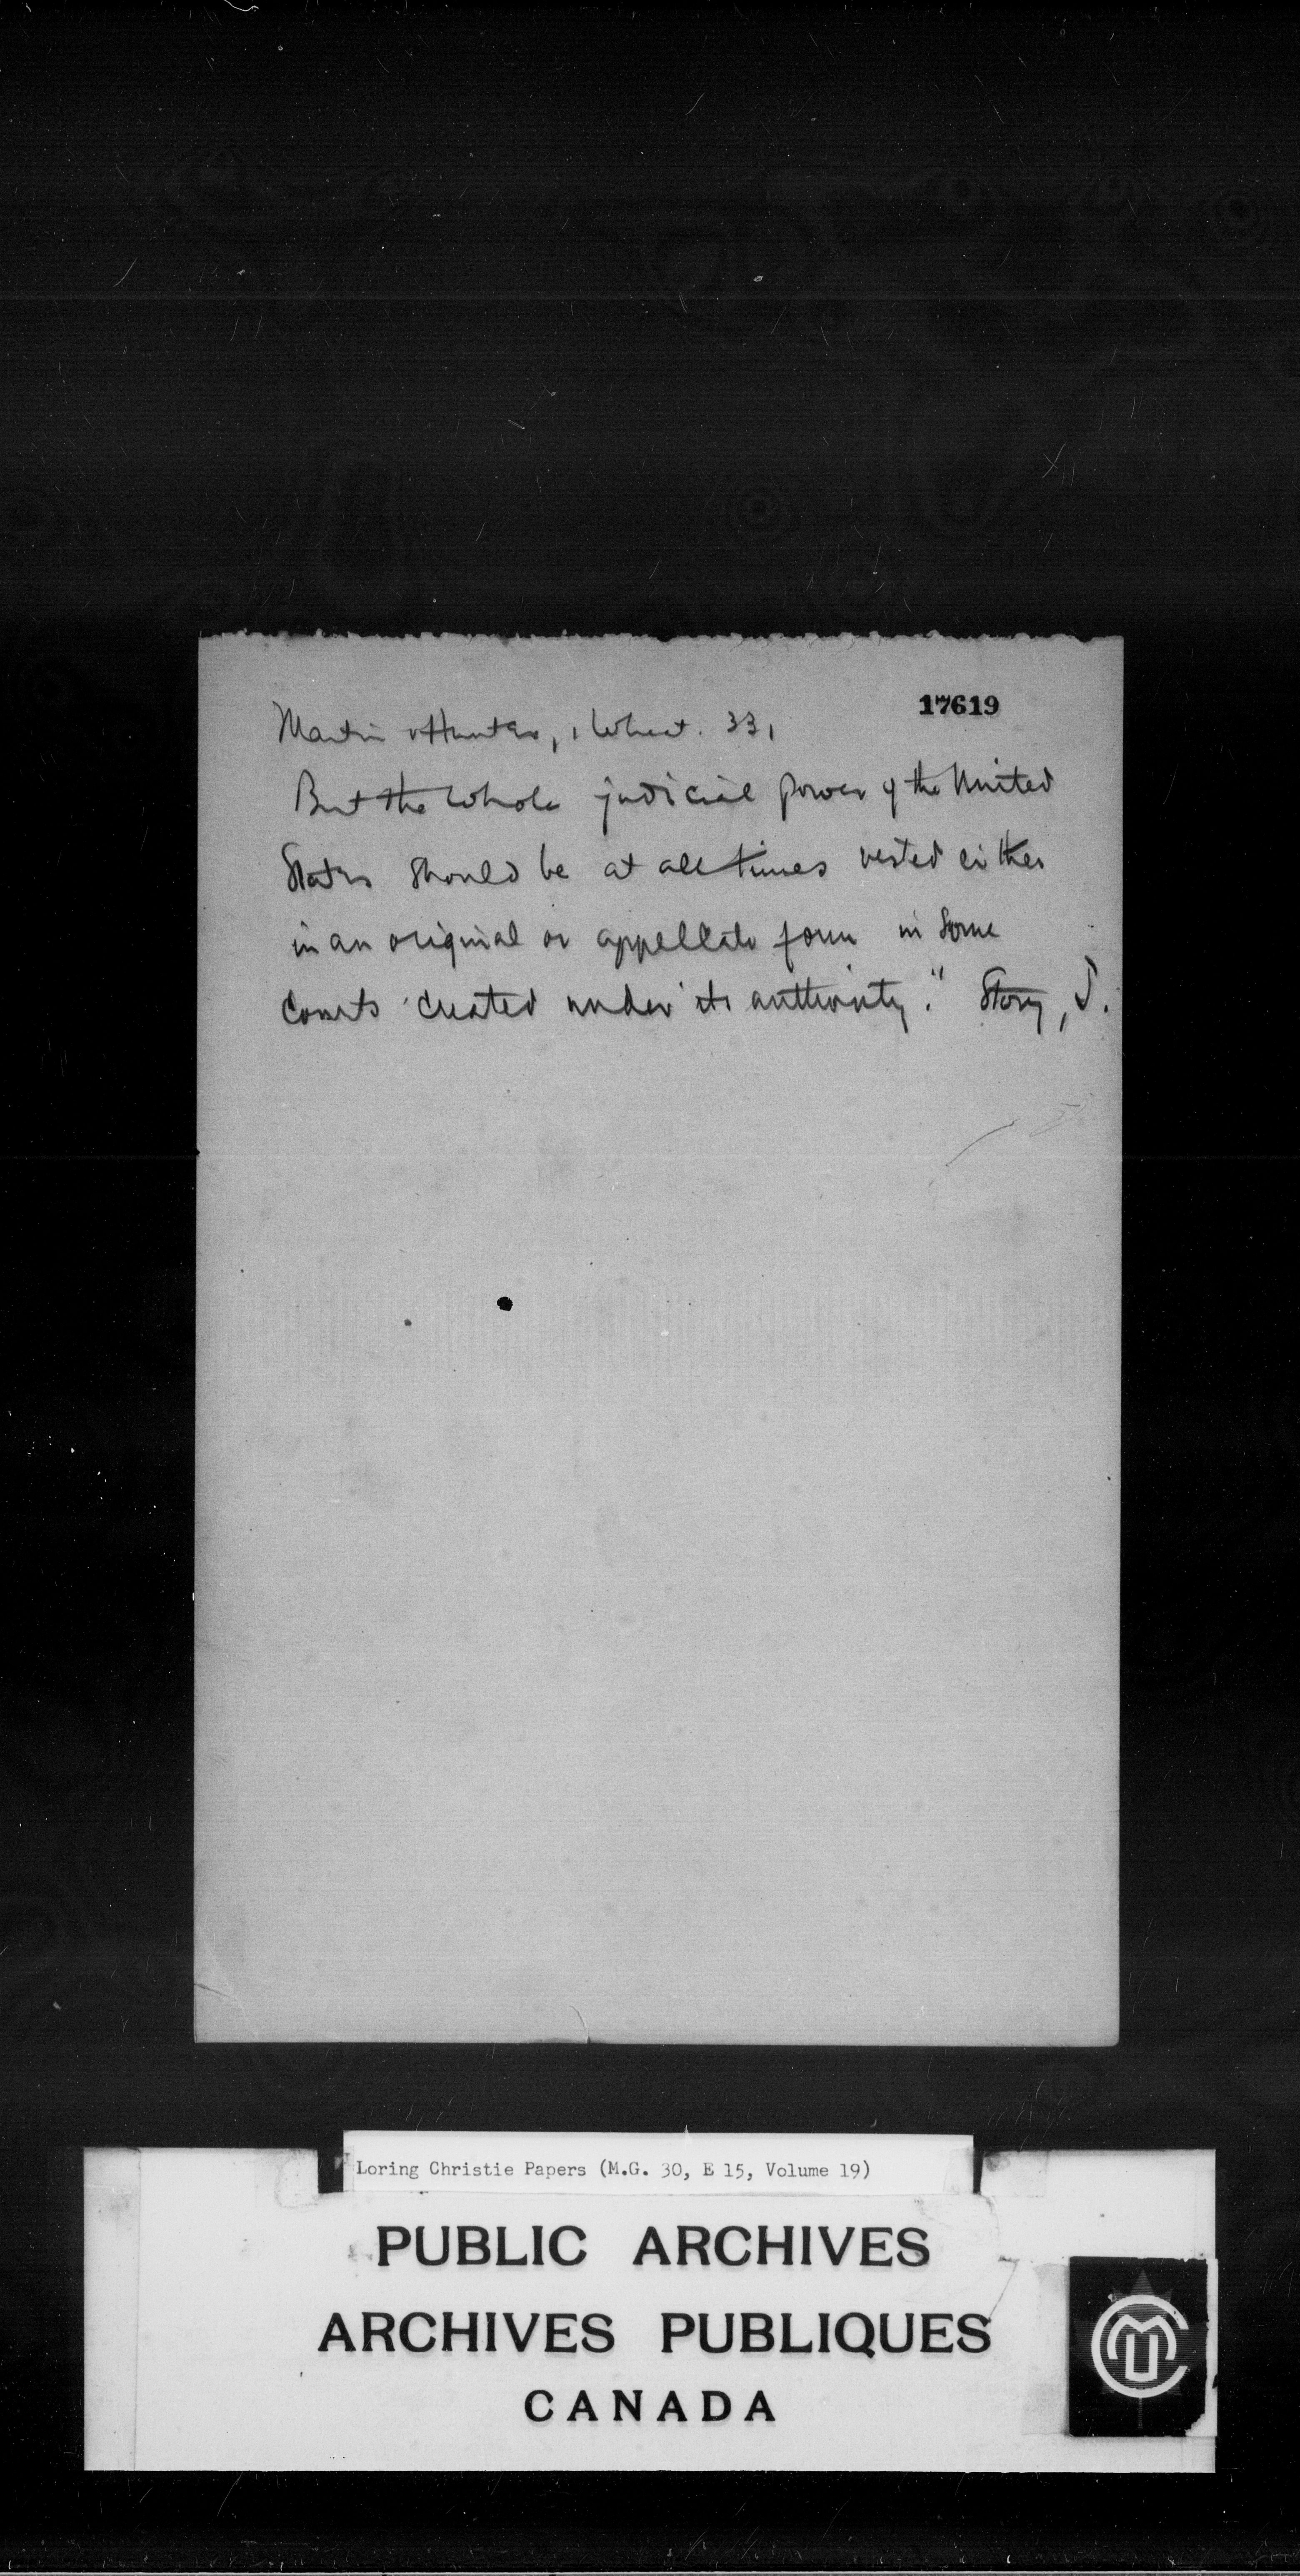 17619
Martin v Hunter, 1 Wheat. 331
But the whole judicial power of the United
States should be at all times vested either
in an original or appellate form in some
courts created under its authority." Story, J.
Loring Christie Papers (M.G. 30, E 15, Volume 19)
PUBLIC ARCHIVES
ARCHIVES PUBLIQUES
CANADA